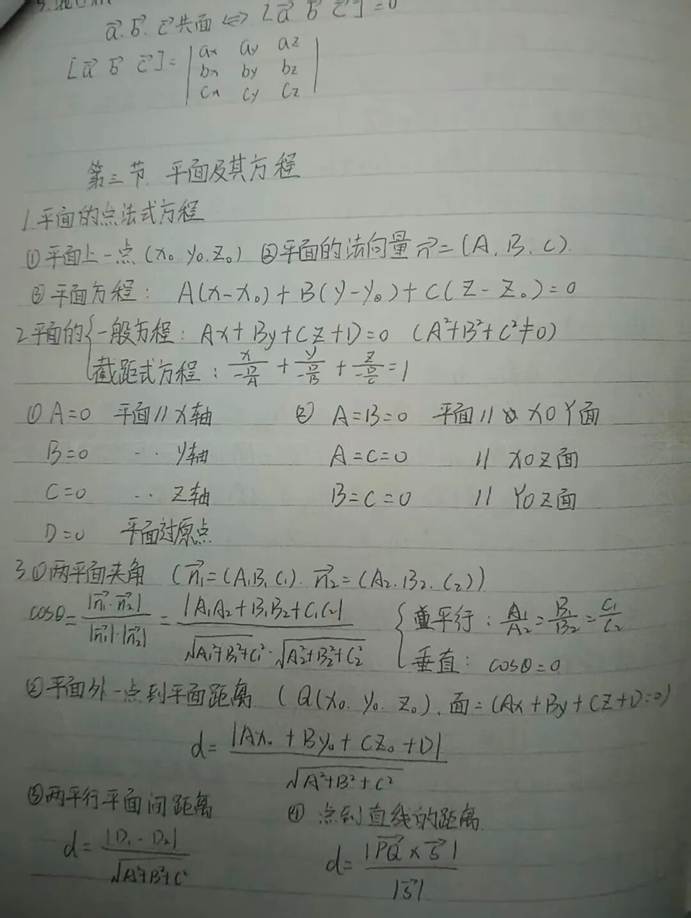 a⃗. b⃗. c⃗共面 ⟺ [a⃗ b⃗ c⃗] = 0
[a⃗ b⃗ c⃗] = | ax ay az |
| bx by bz |
| cx cy cz |
第三节 平面及其方程
1.平面的点法式方程
①平面上一点(x₀. y₀. z₀) ②平面的法向量 n⃗=(A. B. C)
③平面方程: A(x-x₀)+B(y-y₀)+C(z-z₀)=0
2.平面的{一般方程: Ax+By+Cz+D=0 (A²+B²+C²≠0)
截距式方程: x/(-D/A) + y/(-D/B) + z/(-D/C) = 1
① A=0 平面 // X轴 ② A=B=0 平面 // XOY面
B=0 ·· Y轴 A=C=0 // XOZ面
C=0 ·· Z轴 B=C=0 // YOZ面
D=0 平面过原点
3.①两平面夹角 (n₁⃗=(A₁.B₁.C₁). n₂⃗=(A₂.B₂.C₂))
cosθ = |n₁⃗·n₂⃗| / |n₁⃗|·|n₂⃗| = |A₁A₂+B₁B₂+C₁C₂| / √A₁²+B₁²+C₁²·√A₂²+B₂²+C₂² { 平行: A₁/A₂=B₁/B₂=C₁/C₂
垂直: cosθ=0
②平面外一点到平面距离 (Q(x₀. y₀. z₀). 面=(Ax+By+Cz+D=0)
d = |Ax₀+By₀+Cz₀+D| / √A²+B²+C²
③两平行平面间距离 ④ 点到直线的距离
d = |D₁-D₂| / √A²+B²+C² d = |PQ⃗ × s⃗| / |s⃗|